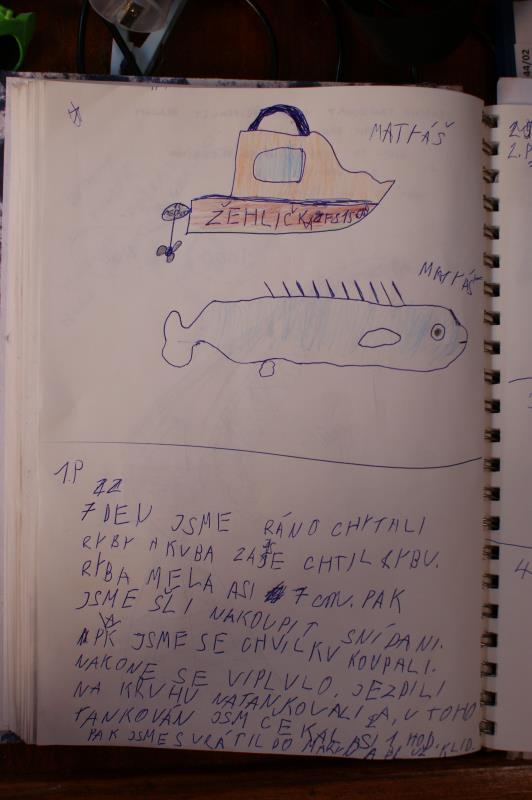 MATYÁŠ
ŽEHLIČKA
MATYÁŠ
1.P
7 DEN JSME RÁNO CHYTALI
RYBY A KUBA ZASE CHTIL RYBU.
RYBA MELA ASI 7 cm. PAK
JSME ŠLI NAKOUPIT SNÍDANI.
PK JSME SE CHVILKU KOUPALI.
NAKONE SE VIPLULO, JEZDILI
NA KRUHU NATANKOVALI A, U TOHO
TANKOVÁN JSM ČEKAL ASI 1 HOD.
PAK JSME S VRÁTIL DO KLID.
2.P
4
44/02